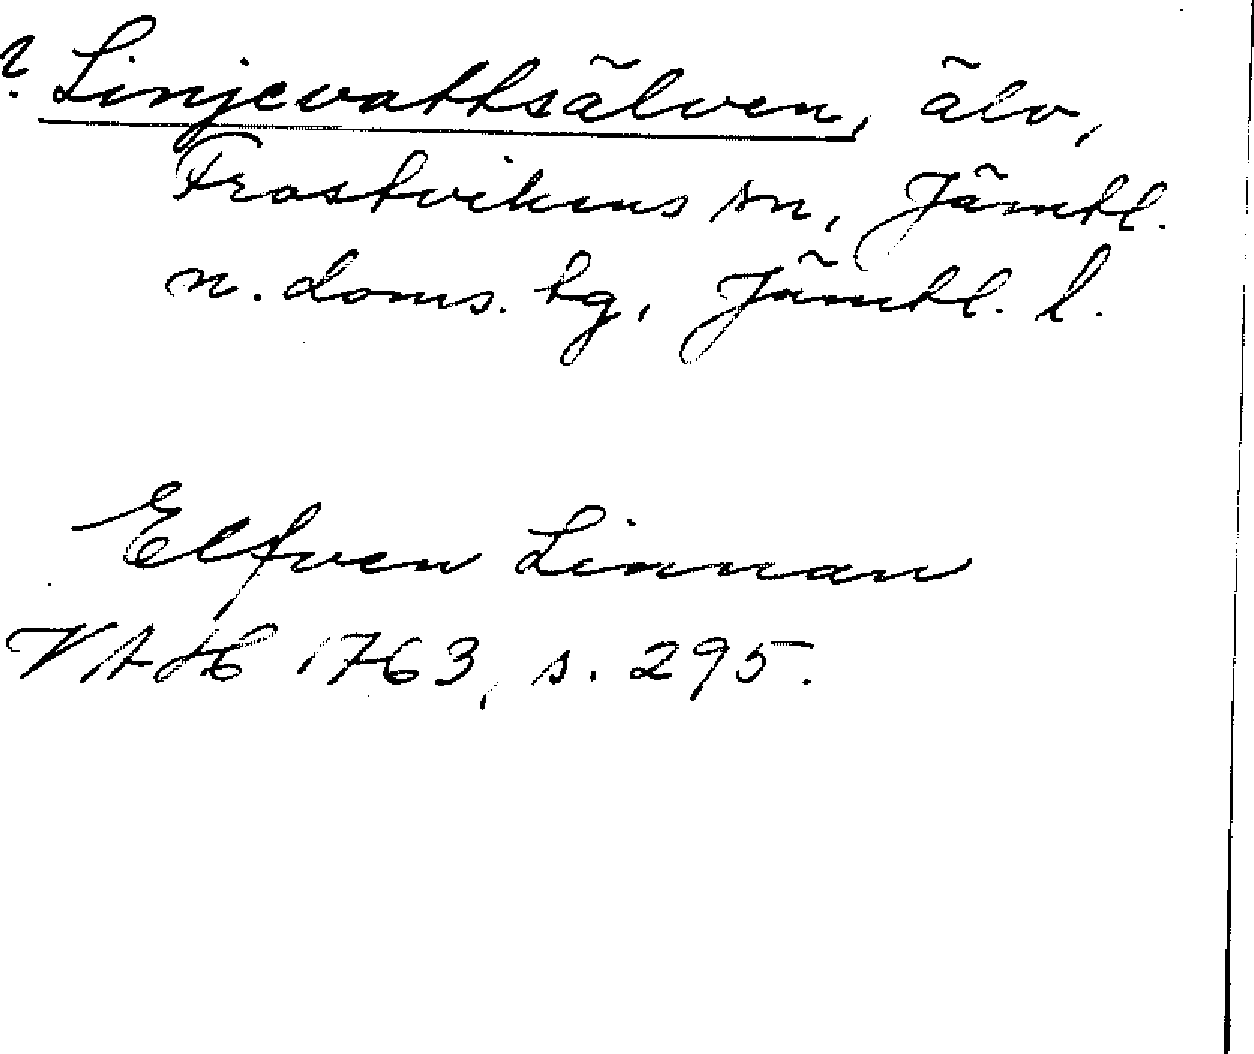 ? Linjevattsälven, älv,
Frostvikens sn, Jämtl.
n. doms. tg, Jämtl. l.
Elfven Linnan
VAH 1763, s. 295.